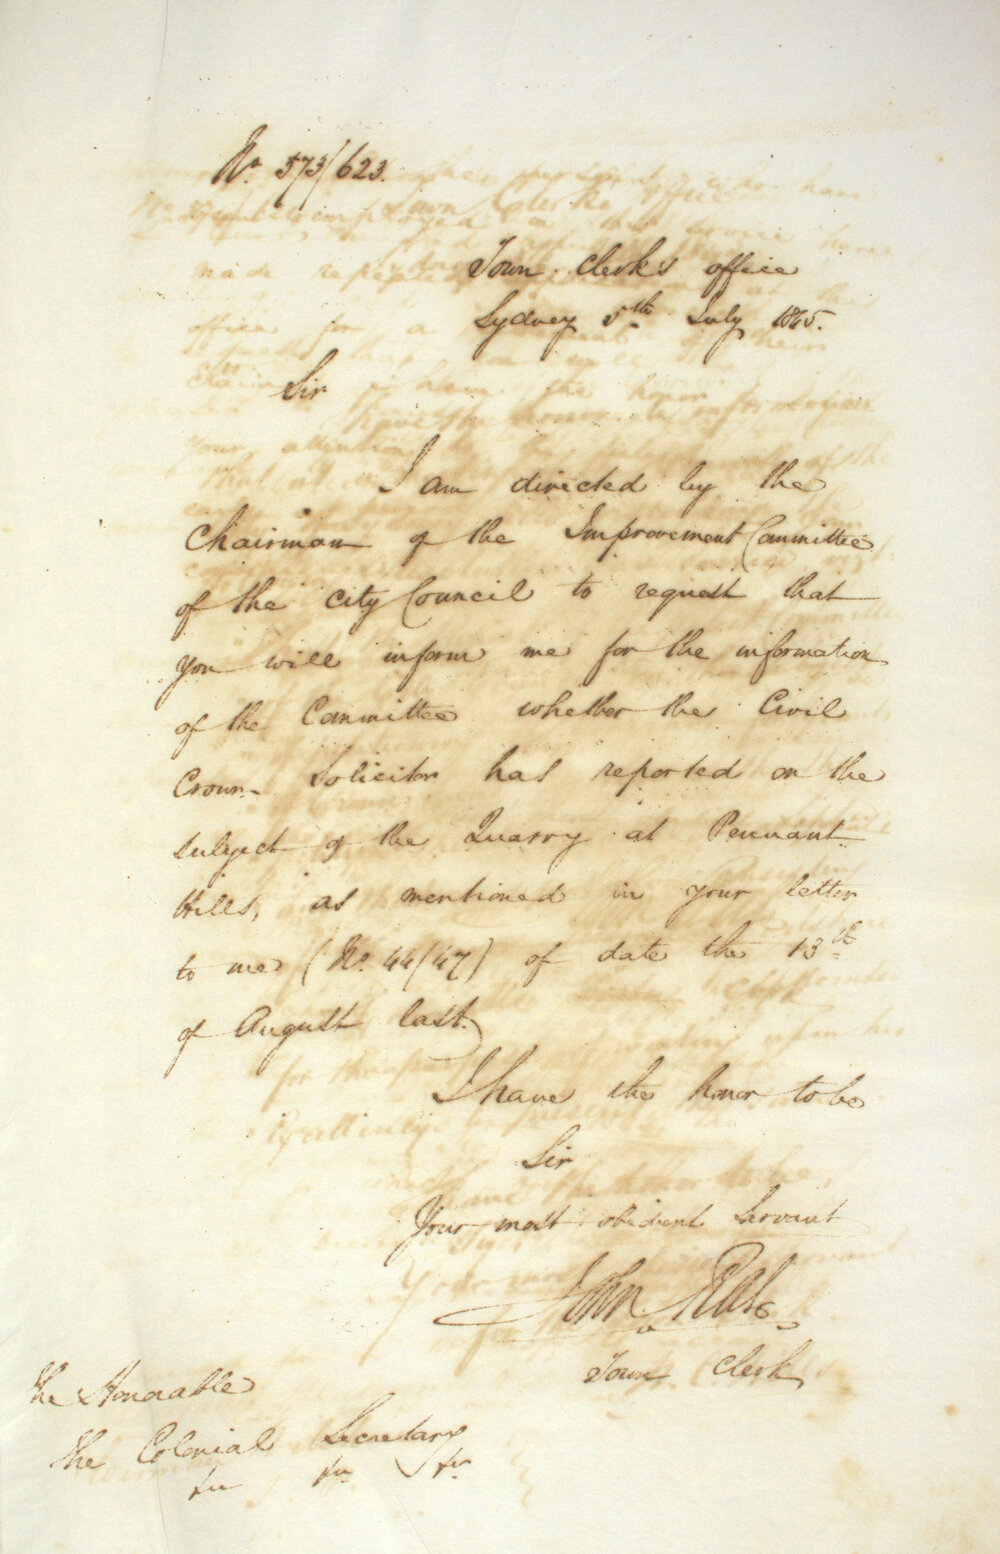 No. 573/623.
Town Clerk's office
Sydney 5th July 1845.
Sir
I am directed by the
Chairman of the Improvement Committee
of the City Council to request that
you will inform me for the information
of the Committee whether the Civil
Crown Solicitor has reported on the
subject of the Quarry at Pennant
Hills, as mentioned in your letter
to me (No. 44/47) of date the 13th
of August last.
I have the honor to be
Sir
Your most obedient Servant
John Rae
Town Clerk
The Honorable
The Colonial Secretary
&c &c &c